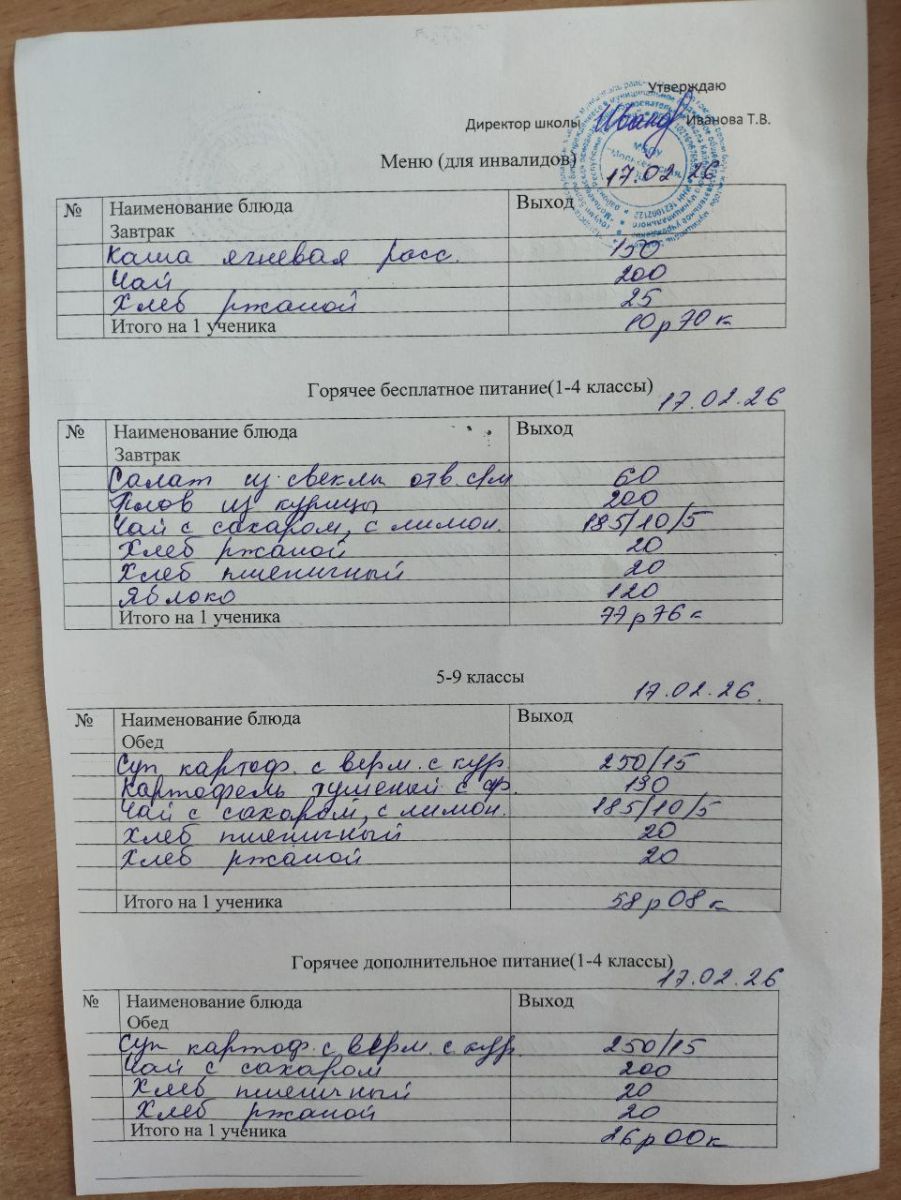 Утверждаю
Директор школы Иванова Т.В.
Меню (для инвалидов)
17.02.26
№ Наименование блюда Выход
Завтрак
Каша ячневая расс. 150
Чай 200
Хлеб ржаной 25
Итого на 1 ученика 10р70к
Горячее бесплатное питание(1-4 классы)
17.02.26
№ Наименование блюда Выход
Завтрак
Салат из свеклы отв. с/м 60
Плов из курицы 200
Чай с сахаром, с лимон. 185/10/5
Хлеб ржаной 20
Хлеб пшеничный 20
Яблоко 120
Итого на 1 ученика 77р76к
5-9 классы
17.02.26.
№ Наименование блюда Выход
Обед
Суп картоф. с верм. с кур. 250/15
Картофель тушеный с ф. 130
Чай с сахаром, с лимон. 185/10/5
Хлеб пшеничный 20
Хлеб ржаной 20
Итого на 1 ученика 58р08к
Горячее дополнительное питание(1-4 классы)
17.02.26
№ Наименование блюда Выход
Обед
Суп картоф. с верм. с. кур. 250/15
Чай с сахаром 200
Хлеб пшеничный 20
Хлеб ржаной 20
Итого на 1 ученика 26р00к